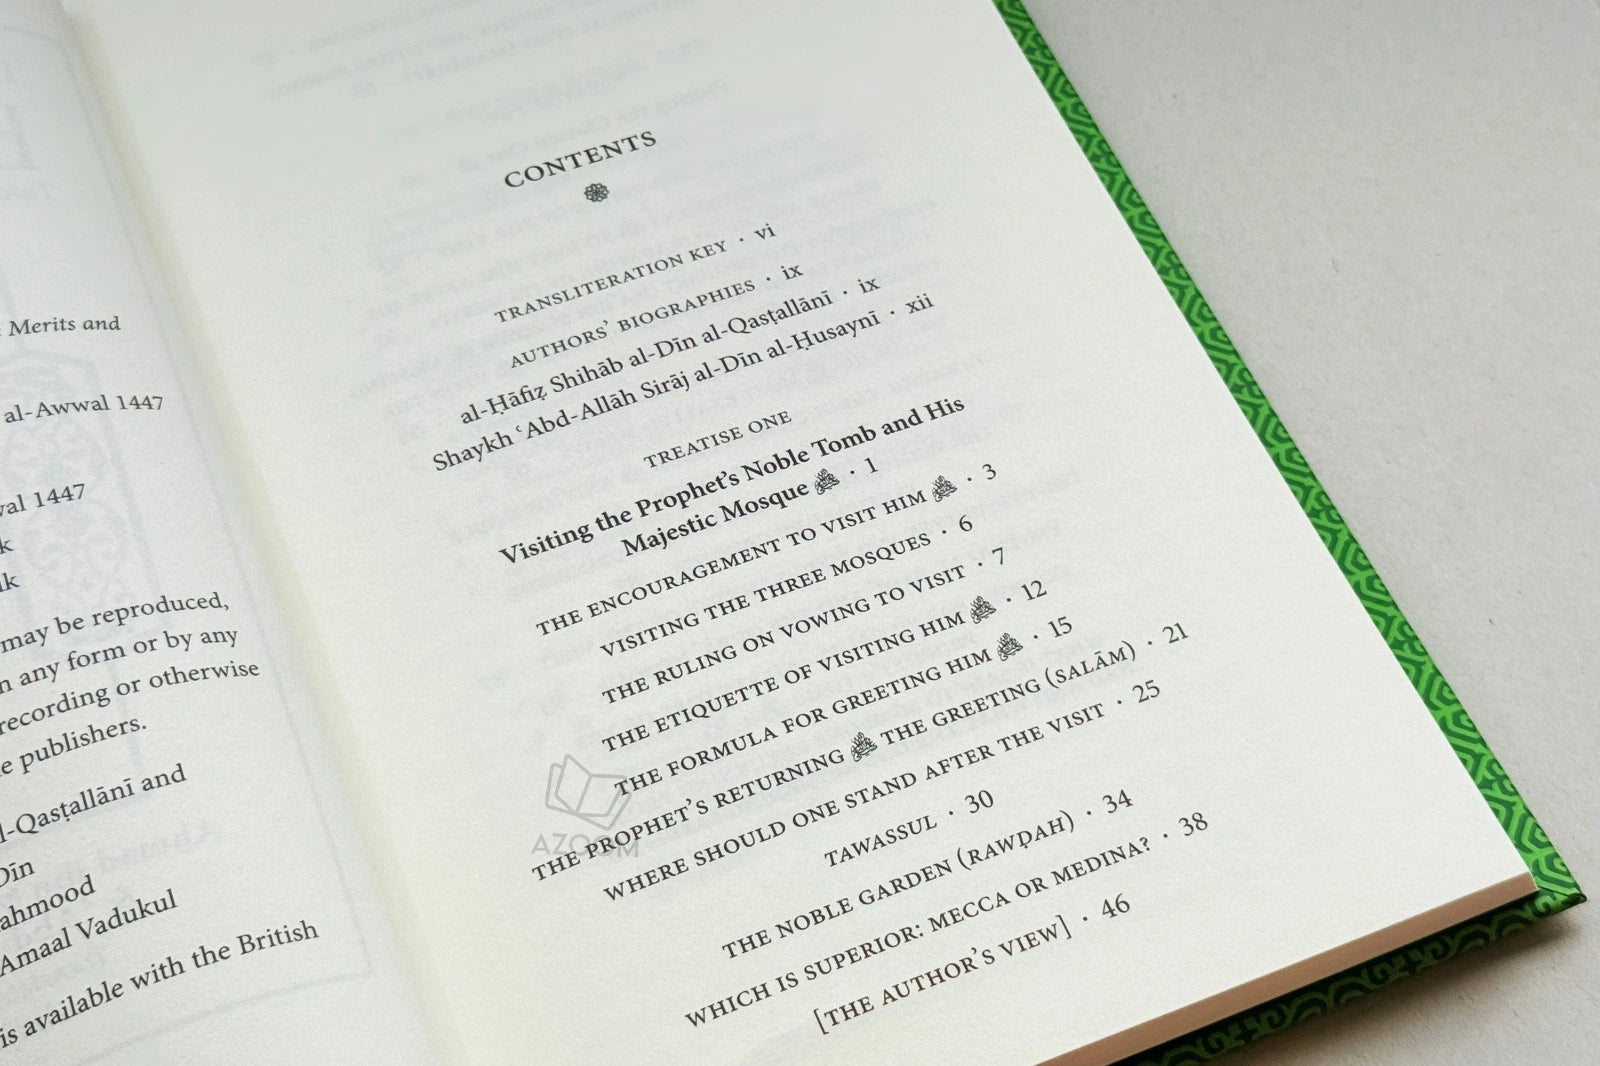 : Merits and
al-Awwal 1447
wal 1447
k
lk
may be reproduced,
n any form or by any
recording or otherwise
e publishers.
l-Qasṭallānī and
Dīn
ahmood
Amaal Vadukul
is available with the British
CONTENTS
TRANSLITERATION KEY · vi
AUTHORS’ BIOGRAPHIES · ix
al-Ḥāfiẓ Shihāb al-Dīn al-Qasṭallānī · ix
Shaykh ʿAbd-Allāh Sirāj al-Dīn al-Ḥusaynī · xii
TREATISE ONE
Visiting the Prophet’s Noble Tomb and His
Majestic Mosque ﷺ · 1
THE ENCOURAGEMENT TO VISIT HIM ﷺ · 3
VISITING THE THREE MOSQUES · 6
THE RULING ON VOWING TO VISIT · 7
THE ETIQUETTE OF VISITING HIM ﷺ · 12
THE FORMULA FOR GREETING HIM ﷺ · 15
THE PROPHET’S RETURNING ﷺ THE GREETING (SALĀM) · 21
WHERE SHOULD ONE STAND AFTER THE VISIT · 25
TAWASSUL · 30
THE NOBLE GARDEN (RAWḌAH) · 34
WHICH IS SUPERIOR: MECCA OR MEDINA? · 38
[THE AUTHOR’S VIEW] · 46
AZOOM